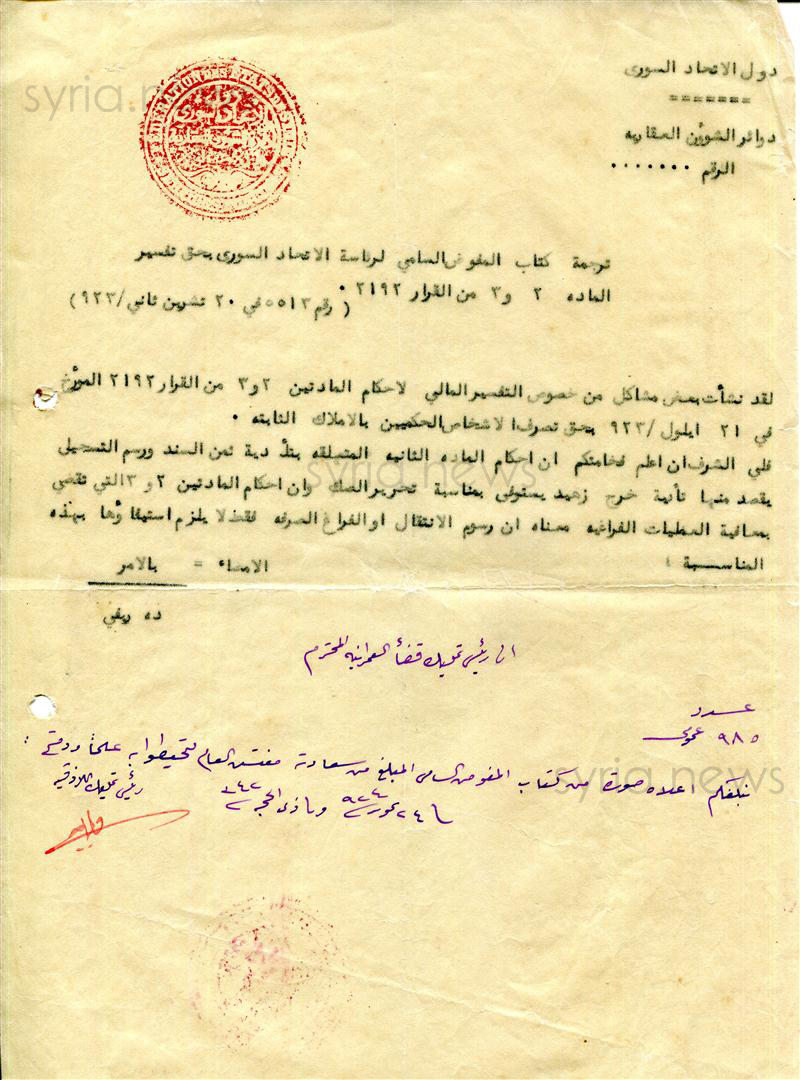 دول الاتحاد السوري
=======
دوائر الشؤون العقاريه
الرقم .......
ترجمة كتاب المفوض السامي لرئاسة الاتحاد السوري بحق تفسير
الماده ٢ و٣ من القرار ٢١٩٢ .
( رقم ٥٥١٣ في ٢٠ تشرين ثاني/٩٢٣)
لقد نشأت بعض مشاكل من خصوص التفسير المالي لاحكام المادتين ٢و٣ من القرار ٢١٩٢ المؤرخ
في ٢١ ايلول/٩٢٣ بحق تصرف الاشخاص الحكميين بالاملاك الثابته .
فلي الشرف ان اعلم فخامتكم ان احكام الماده الثانيه المتعلقه بتأدية ثمن السند ورسم التسجيل
يقصد منها تأدية خرج زهيد يستوفى بمناسبة تحرير الصك وان احكام المادتين ٢و٣ التي تقضي
بمعافية العمليات الفراغيه معناه ان رسوم الانتقال او الفراغ الصرفه فقط لا يلزم استيفاؤها بهذه
المناسسبة ؛
الامضاء = بالامر
ده ريفي
الى رئيس تمليك قضأ العمرانيه المحترم
عدد
٩٨٥ عمومي
نبلغكم اعلاه صورة من كتاب المفوض السامي المبلغ من سعادة مفتش العام لتحيطوا به علما ودمتم :
٢٤ تموز ٩٢٤ و ذي الحجة ٣٤٢
رئيس تمليك اللاذقيه
syria.news
syria.news
syria.news